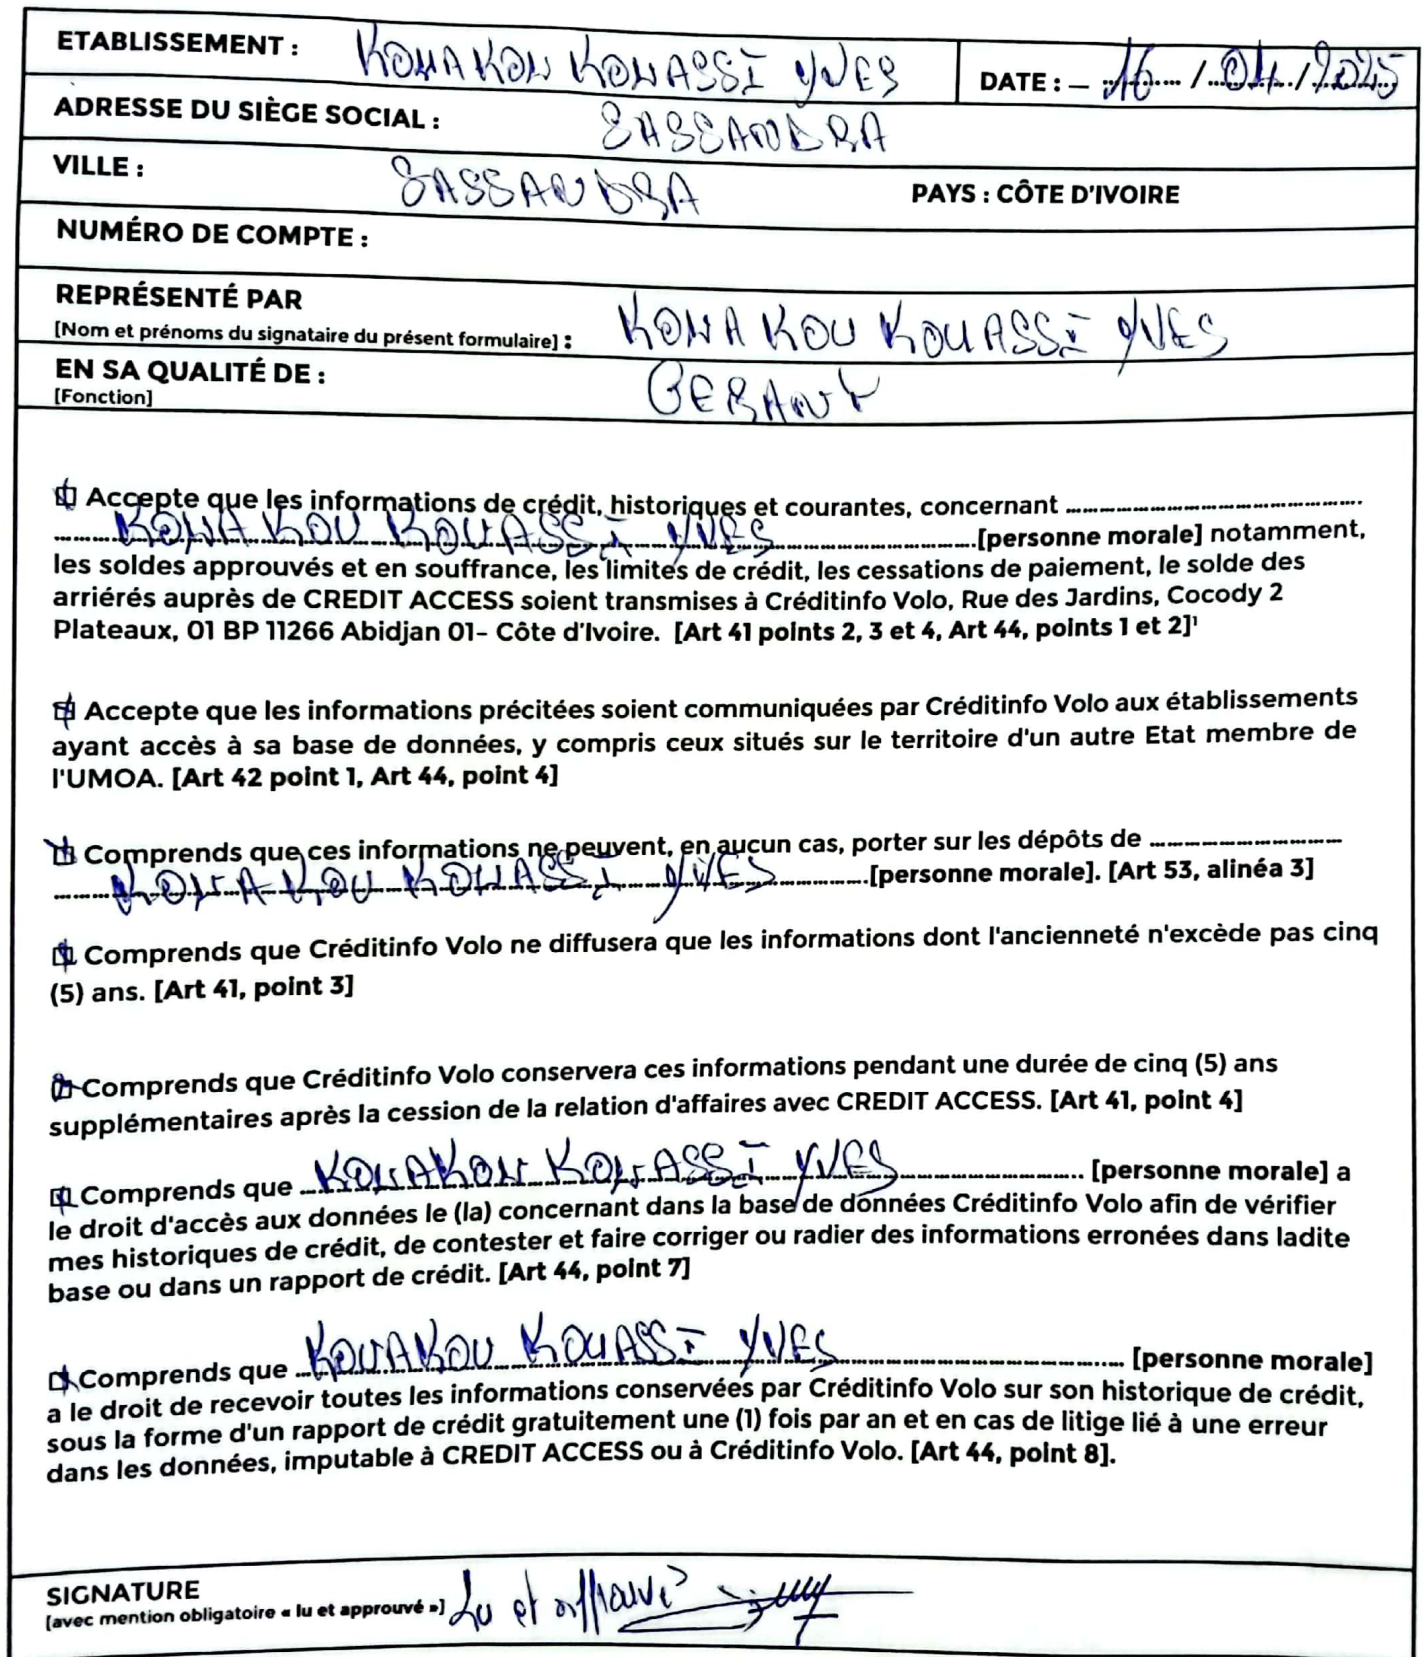 ETABLISSEMENT : KOUAKOU KOUASSI YVES DATE : – 16 / 04 / 2025
ADRESSE DU SIÈGE SOCIAL : SASSANDRA
VILLE : SASSANDRA PAYS : CÔTE D'IVOIRE
NUMÉRO DE COMPTE :
REPRÉSENTÉ PAR
[Nom et prénoms du signataire du présent formulaire] : KOUAKOU KOUASSI YVES
EN SA QUALITÉ DE : GERANT
[Fonction]
Accepte que les informations de crédit, historiques et courantes, concernant
KOUAKOU KOUASSI YVES [personne morale] notamment,
les soldes approuvés et en souffrance, les limites de crédit, les cessations de paiement, le solde des
arriérés auprès de CREDIT ACCESS soient transmises à Créditinfo Volo, Rue des Jardins, Cocody 2
Plateaux, 01 BP 11266 Abidjan 01– Côte d'Ivoire. [Art 41 points 2, 3 et 4, Art 44, points 1 et 2]¹
Accepte que les informations précitées soient communiquées par Créditinfo Volo aux établissements
ayant accès à sa base de données, y compris ceux situés sur le territoire d'un autre Etat membre de
l'UMOA. [Art 42 point 1, Art 44, point 4]
Comprends que ces informations ne peuvent, en aucun cas, porter sur les dépôts de
KOUAKOU KOUASSI YVES [personne morale]. [Art 53, alinéa 3]
Comprends que Créditinfo Volo ne diffusera que les informations dont l'ancienneté n'excède pas cinq
(5) ans. [Art 41, point 3]
Comprends que Créditinfo Volo conservera ces informations pendant une durée de cinq (5) ans
supplémentaires après la cession de la relation d'affaires avec CREDIT ACCESS. [Art 41, point 4]
Comprends que KOUAKOU KOUASSI YVES [personne morale] a
le droit d'accès aux données le (la) concernant dans la base de données Créditinfo Volo afin de vérifier
mes historiques de crédit, de contester et faire corriger ou radier des informations erronées dans ladite
base ou dans un rapport de crédit. [Art 44, point 7]
Comprends que KOUAKOU KOUASSI YVES [personne morale]
a le droit de recevoir toutes les informations conservées par Créditinfo Volo sur son historique de crédit,
sous la forme d'un rapport de crédit gratuitement une (1) fois par an et en cas de litige lié à une erreur
dans les données, imputable à CREDIT ACCESS ou à Créditinfo Volo. [Art 44, point 8].
SIGNATURE
[avec mention obligatoire « lu et approuvé »] Lu et approuvé